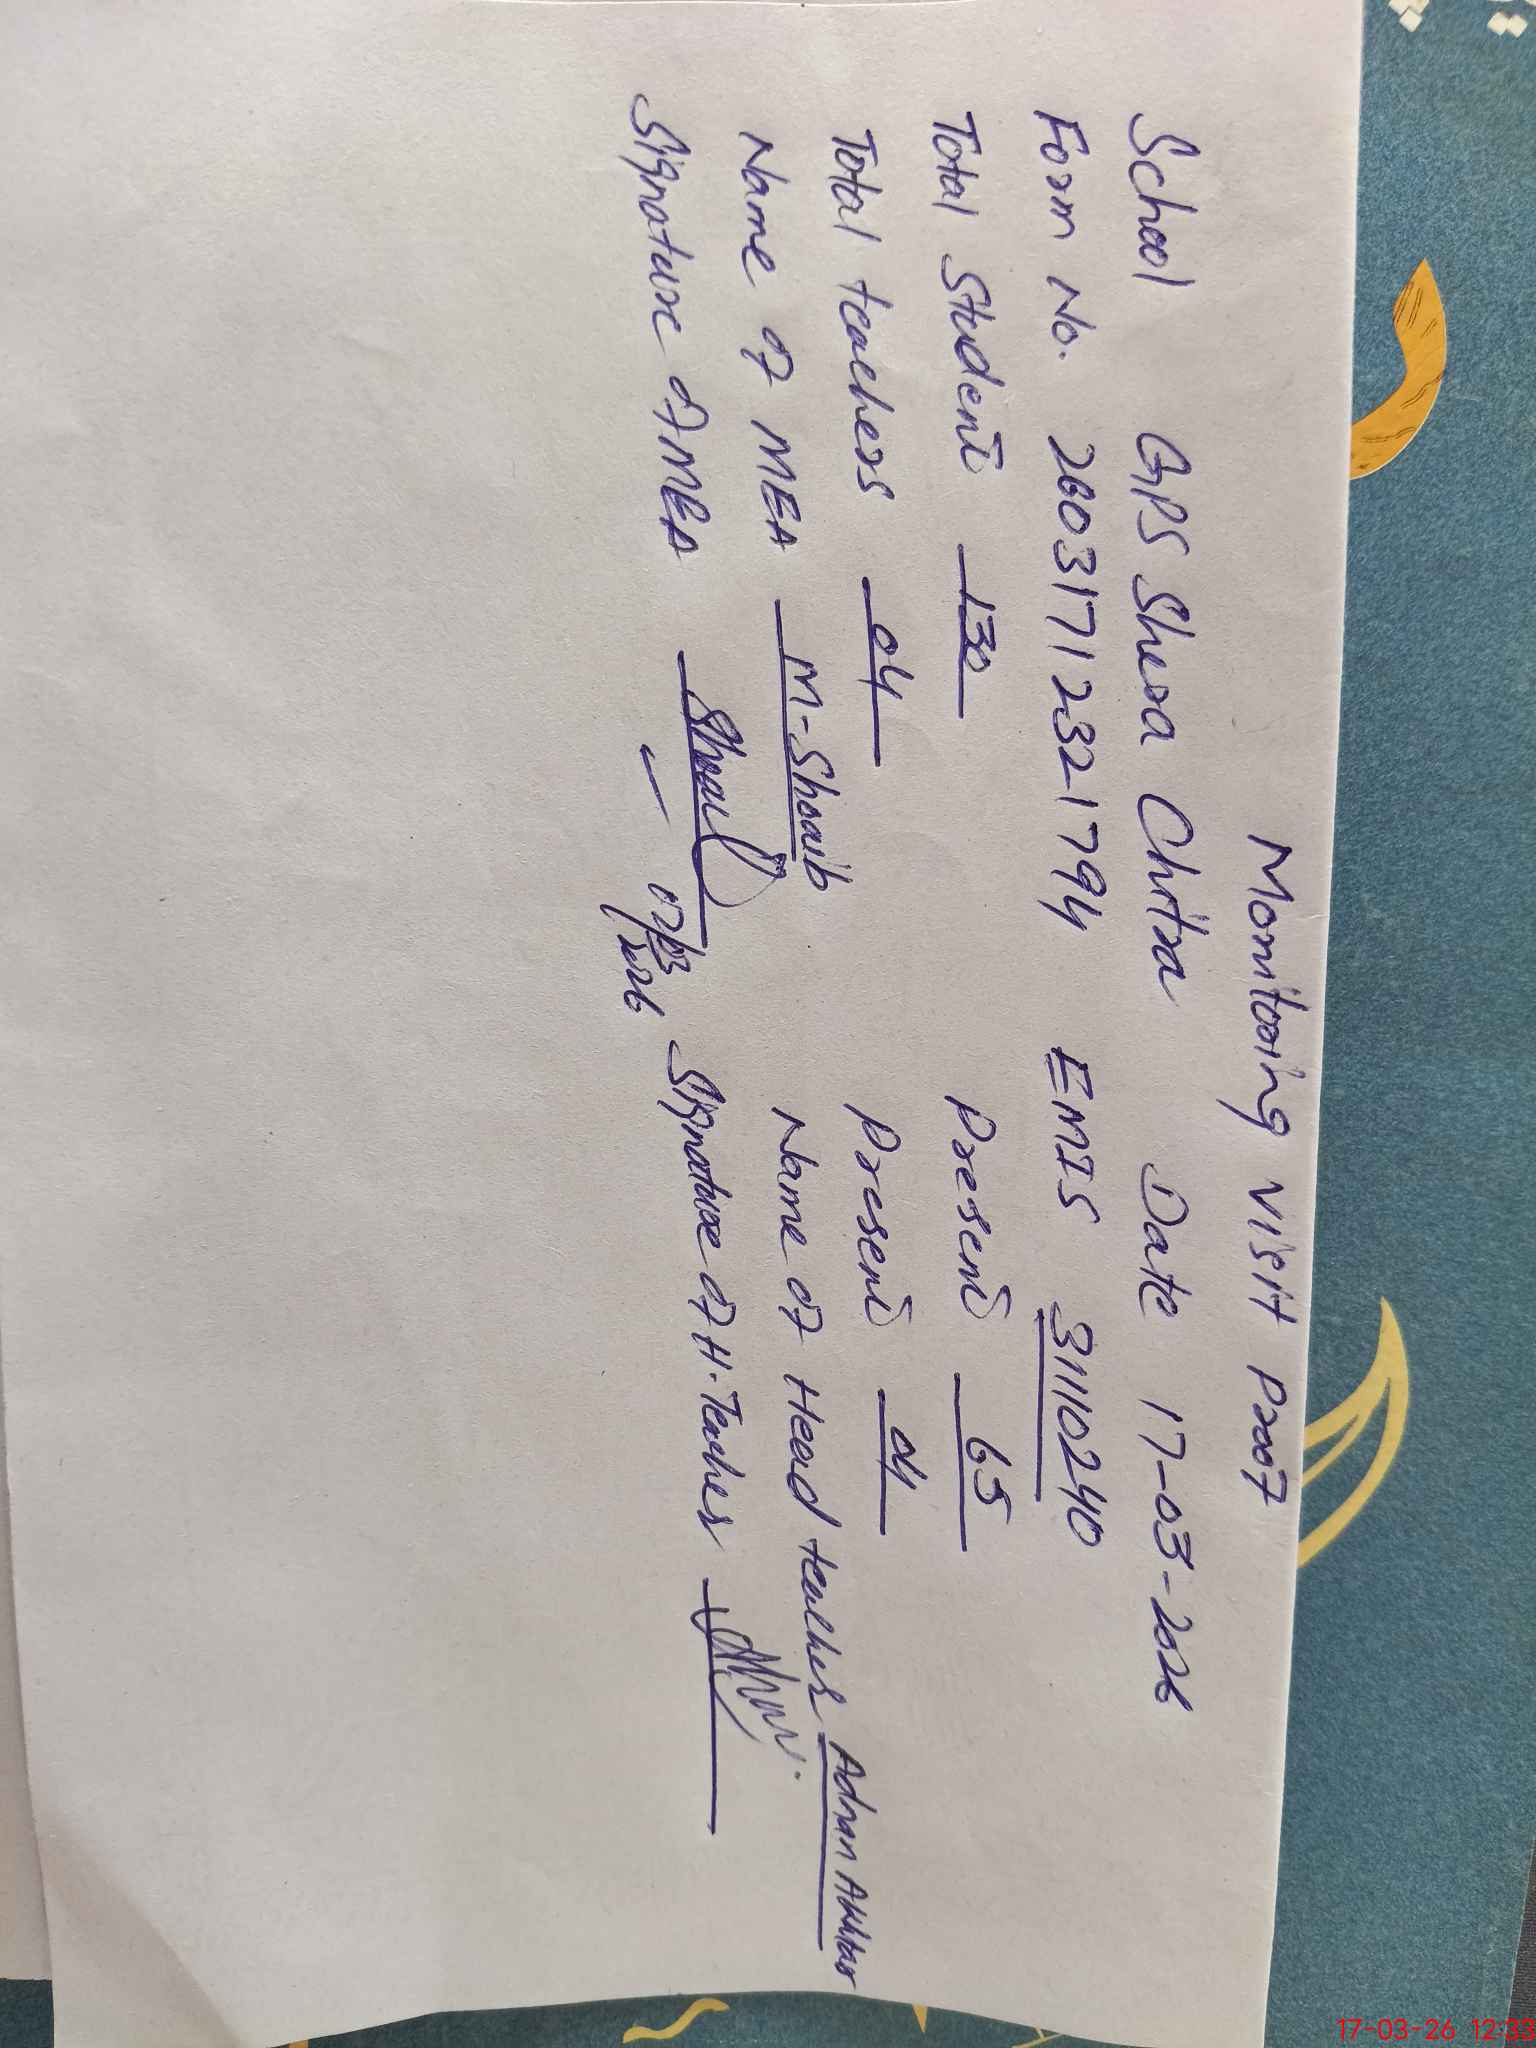 Monitoring Visit Proof
School GPS Shera Chitra Date 17-03-2026
Form No. 26031712321794 EMIS 31110240
Total Student 130 Present 65
Total teachers 04 Present 04
Name of MEA M-Shoaib Name of Head teacher Adnan Akhtar
Signature of MEA Shoaib Signature of H. Teacher
17/03/2026
17-03-26 12:33